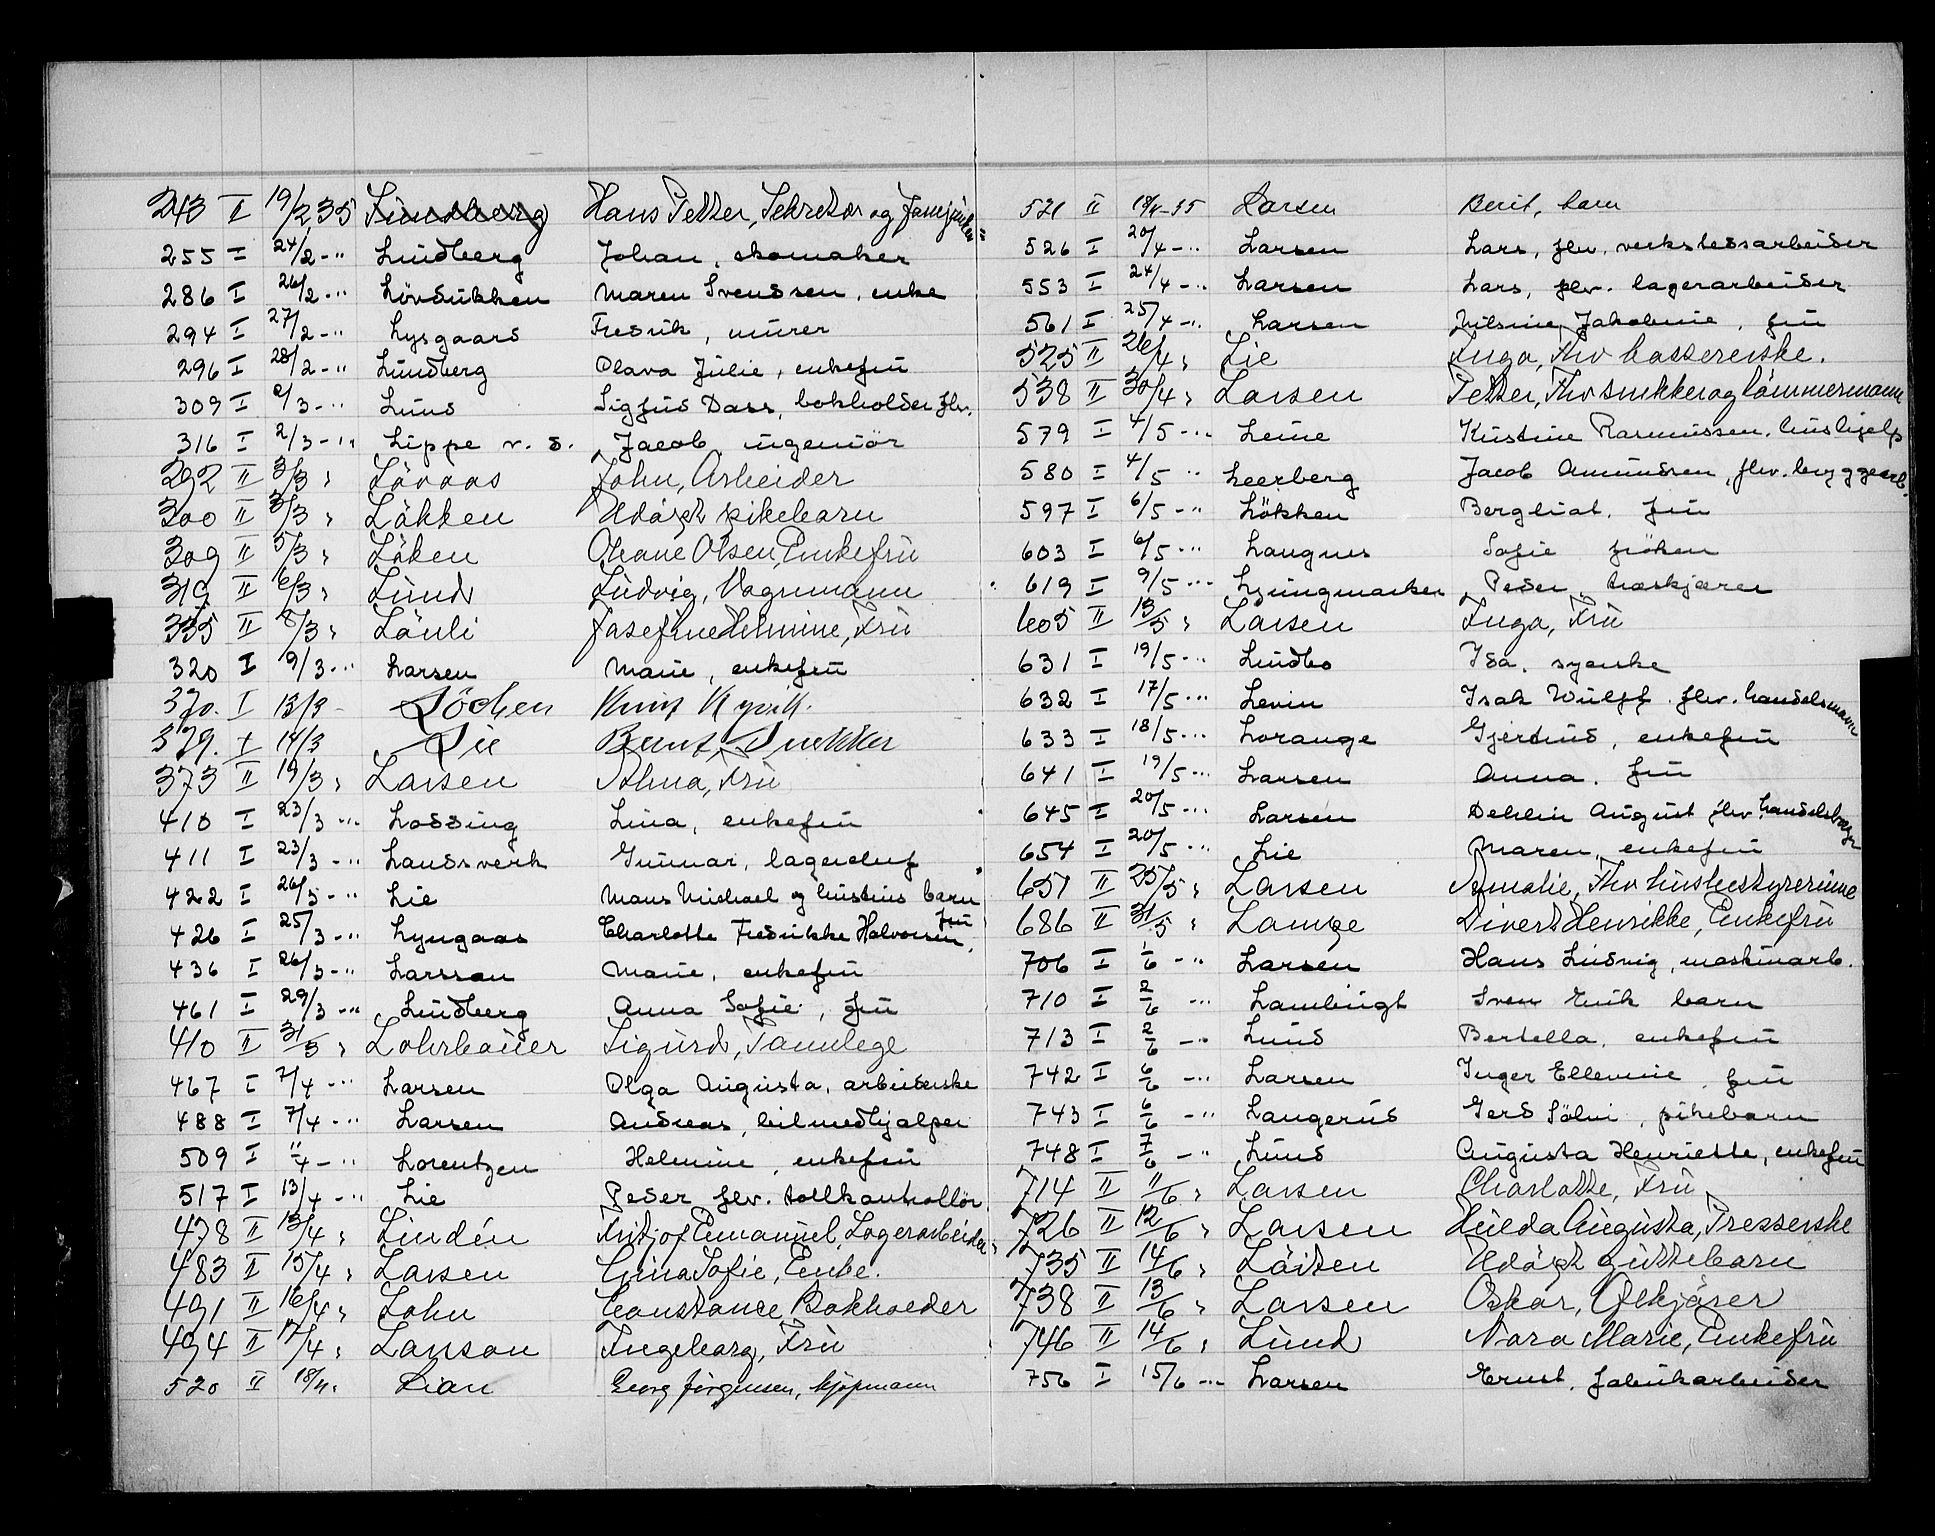 243 II 19/2 35 Lundberg Hans Petter, Sekretær og
255 I 24/2 - " Lundberg Johan, skomaker
286 I 26/2 - " Lövdukken Maren Svendsen, enke
294 I 27/2 - " Lysgaard Fredrik, murer
296 I 28/2 - " Lundberg Olava Julie, enkefru
309 I 2/3 - " Lund Sigfus Dass, bokholder fhv.
316 I 2/3 - " Lippe v. d. Jacob ingeniör
292 II 3/3 " Lövaas John, Arbeider
300 II 3/3 " Lökken Udöpt pikebarn
309 II 5/3 " Löken Oleane Olsen, Enkefru
319 II 6/3 " Lund Ludvig, Vognmann
335 II 8/3 " Lönli Josefine Helmine, Fru
320 I 9/3 - " Larsen Marie, enkefru
370. I 13/3 - Löchen Knut Kyvik.
379. I 14/3 Lie Bernt, Snekker
373 II 19/3 " Larsen Alma, Fru
410 I 23/3 - " Lossing Lina, enkefru
411 I 23/3 - " Landsverk Gunnar, lagerchef
422 I 26/3 - " Lie Mons Michael og hustrus barn
426 I 25/3 - " Lyngaas Charlotte Fredrikke Halvorsen, fru
436 I 26/3 - " Larsson Marie, enkefru
461 I 29/3 - " Lundberg Anna Sofie, fru
410 II 31/3 " Lohrbauer Sigurd, Tannlege
467 I 7/4 - " Larsen Olga Augusta, arbeiderske
488 I 7/4 - " Larsen Andreas, bilmedhjelper
509 I 11/4 - " Lorentzen Helmine, enkefru
517 I 13/4 - " Lie Peder fhv. tollkontrollör
478 II 13/4 " Lindén Fritjof Emanuel, Lagerarbeider
483 II 15/4 " Larsen Gina Sofie, Enke.
491 II 16/4 " Lohn Constance, Bokholder
494 II 17/4 " Larson Ingeborg, Fru
520 II 18/4 " Lian Georg Jörgensen, kjøpmann
521 II 18/4 - 35 Larsen Berit, barn
526 I 20/4 - " Larsen Lars, fhv. verkstedsarbeider
553 I 24/4 - " Larsen Lars, fhv. lagerarbeider
561 I 25/4 - " Larsen Nilsine Jakobine, fru
525 II 26/4 " Lie Inga, Fhv Kassererske.
538 II 30/4 " Larsen Petter, Fhv snekker og tömmermann
579 I 4/5 - " Leine Kristine Rasmussen, hushjelp
580 I 4/5 " Leerberg Jacob Amundsen, fhv. bryggearb.
597 I 6/5 - " Lökken Bergliot, fru
603 I 6/5 - " Langnes Sofie fröken
619 I 9/5 - " Ljungmarker Peder træskjærer
605 II 13/5 " Larsen Inga, Fru
631 I 19/5 - " Lindbo Ida, syerske
632 I 17/5 - " Levin Isak Wulff, fhv. handelsmann
633 I 18/5 - " Lorange Gjertrud, enkefru
641 I 19/5 - " Larsen Anna, fru
645 I 20/5 - " Larsen Dehlin August fhv handelsbetj.
654 I 20/5 - " Lie Maren, enkefru
651 II 25/5 " Larsen Amalie, Fhv husbestyrerinne
686 II 31/5 " Lange Sivert Henrikke, Enkefru
706 I 1/6 - " Larsen Hans Ludvig, maskinarb.
710 I 2/6 - " Lambrigt Sven Erik barn
713 I 2/6 - " Lund Bertella, enkefru
742 I 6/6 - " Larsen Inger Ellevine, fru
743 I 6/6 - " Langerud Gerd Sölvi, pikebarn
748 I 7/6 - " Lund Augusta Henriette, enkefru
714 II 11/6 " Larsen Charlotte, Fru
726 II 12/6 " Larsen Hulda Augusta, Presserske
735 II 14/6 " Löiten Udöpt guttebarn
738 II 13/6 " Larsen Oskar, Ölkjörer
746 II 14/6 " Lund Nora Marie, Enkefru
756 I 15/6 - " Larsen Ernst, fabrikarbeider